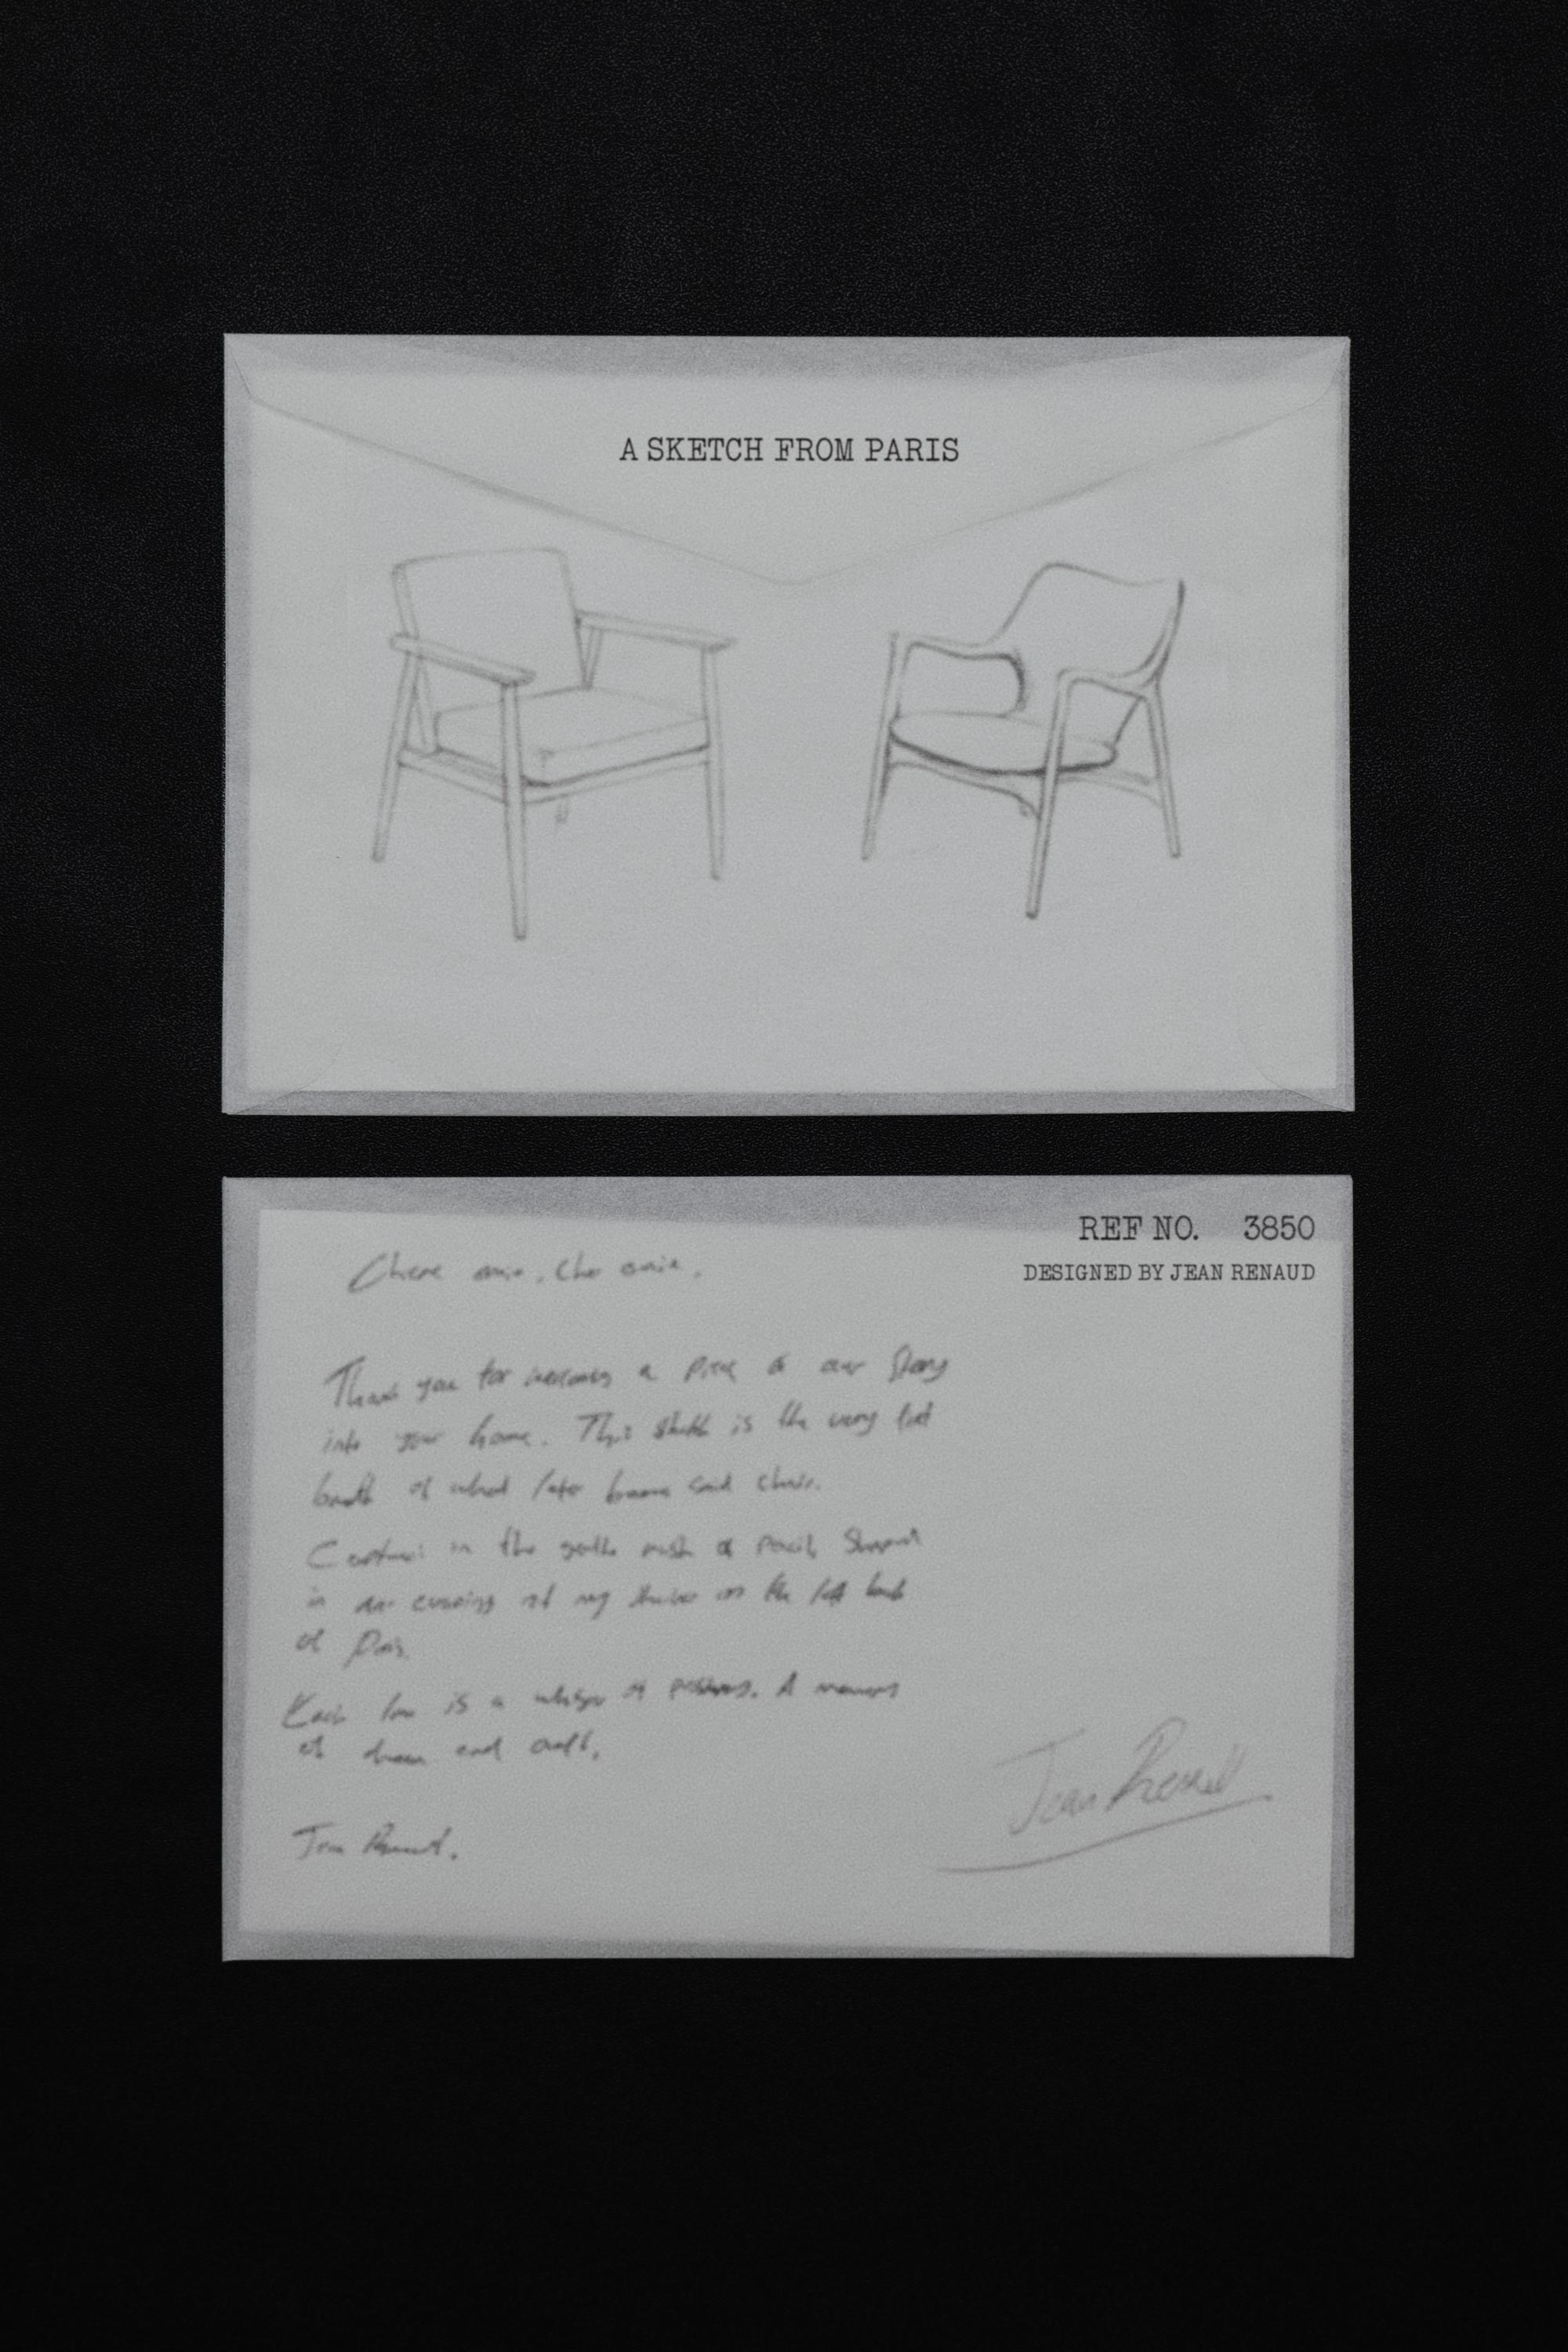 A SKETCH FROM PARIS
REF NO. 3850
DESIGNED BY JEAN RENAUD
Thank you for a piece of our story
into your home. This sketch is the very first
breath of what later became said chair.
in the gentle of pencil,
in an evening at my on the left bank
of Paris.
Each line is a whisper of A
of and craft.
Jean Renaud.
Jean Renaud